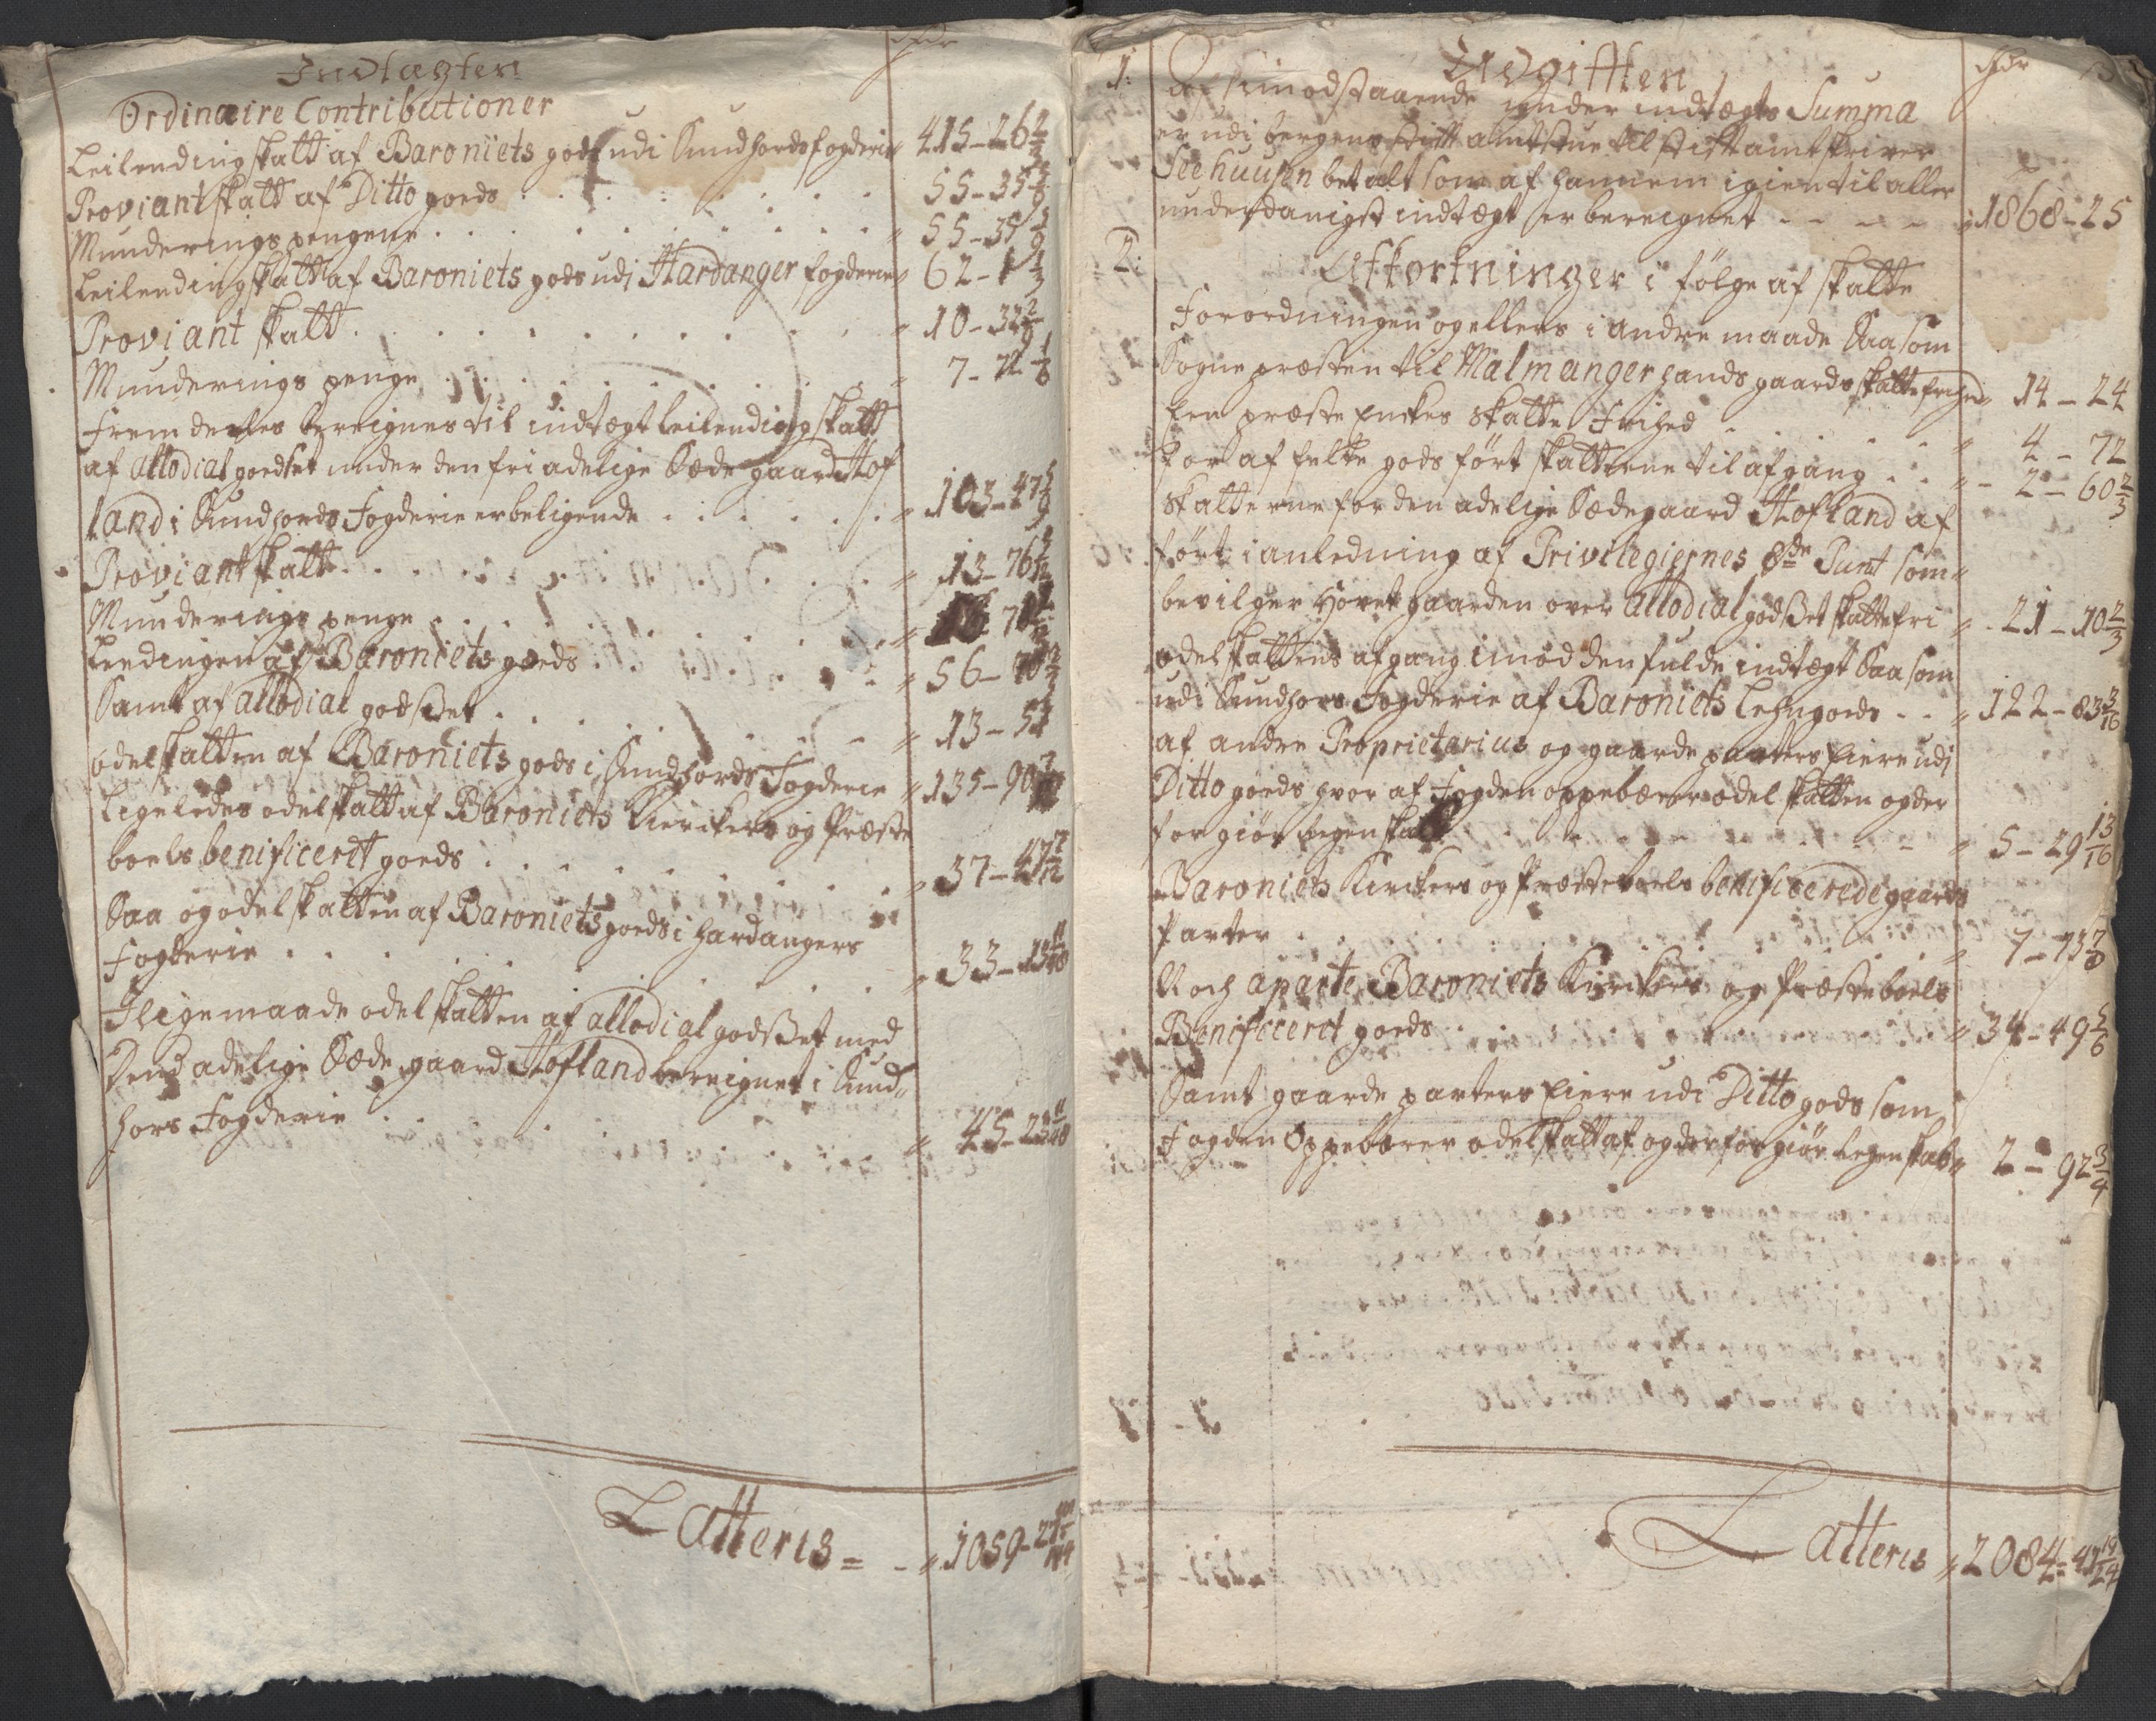 Indtægten
Rdr
Ordinaire Contributioner
Leilendingskatt af Baroniets gods udi Sundhords fogderie 415-26 2/3
Proviantskatt af Ditto goeds 55-35 5/9
Munderings pengene 55-35 5/9
Leilendingskatt af Baroniets gods udi Hardanger fogderie 62-1 1/3
Proviant skatt 10-32 2/9
Munderings penge 7-72
Fremdeeles bereignes til indtægt Leilendingskatt
af allodial goedset under den fri adelige Sæde gaard Hof
land i Sundhords Fogderie erbeligende 103-47
Proviantskatt 13-76
Munderings penge
Leedingen af Baroniets goeds 56-70
Samt af allodial godset 13-5
odelskatten af Baroniets gods i Sundhords Fogderie 135-90
Ligeledes odelskatt af Baroniets Kierckers og Præste
boels benificerit goeds 37-47 7/12
Saa og odelskatten af Baroniets goeds i Hardangers
Fogderie 33-13 11/48
I ligemaade odelskatten af allodial godset med
Dend adelige Sæde gaard Hofland bereignet i Sund
hors Fogderie 45-23 11/48
Latteris 1059-27
Udgiften
Rdr
1: Af himodstaaende under indtægts Summa
er udi bergens stift amtstue til stiftamtskriver
Seehuusen betalt som af hannem igien til aller
underdanigst indtægt er bereignet 1868-25
2: Afkortninger i følge af skatte
Forordningen og ellers i andre maade Saasom
Sogne præsten til Malmanger hands gaards skatte frihed 14-24
Een præste Enckes skatte Frihed 4-72
For af felte gods ført skatterne til afgang 2-60 2/3
Skatterne for den adelige Sædegaard Hofland af
ført i anledning af Privilegiernes 8de Punt som
bevilger Hovetgaarden over allodial godset skattefri 21-10 2/3
odelskattens afgang imod den fulde indtægt Saasom
udi Sundhors Fogderie af Baroniets Lehngoeds 122-83 3/16
af andre Proprietarius og gaarde parters Eiere udi
Ditto goeds hvor af Fogden oppebærer odelskatten og der
for giør regenskab 5-29 13/16
Baroniets Kierckers og Præsteboels benificerede gaards
Parter 7-73 7/8
Noch aparte Baroniets Kierckers og Præsteboels
Benificerit goeds 34-49 5/6
Samt gaarde parters Eiere udi Ditto gods som
Fogden Oppebærer odelskatt af og derfor giør regenskab 2-92 3/4
Latteris 2084-41 19/24